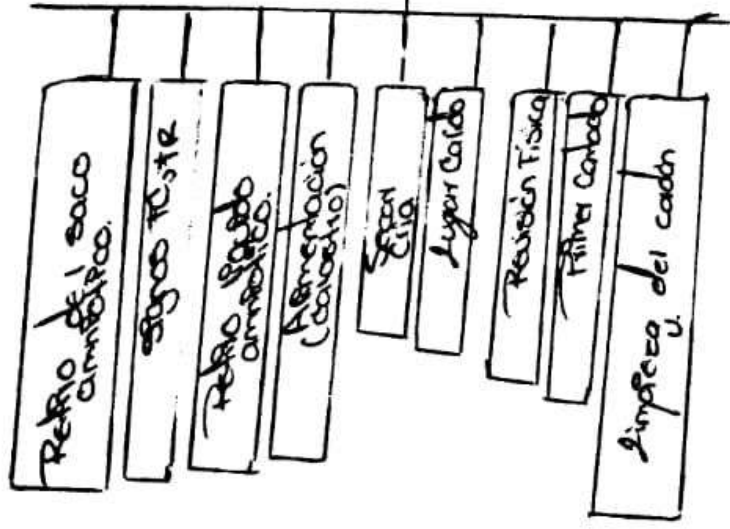 Retiro del saco
amniótico.
Signos FC, TR
Retiro líquido
amniótico.
Alimentación
(calostro)
Secar
Cría
Lugar Calido
Revisión Física
Primer Cambio
Limpieza del cordón
U.